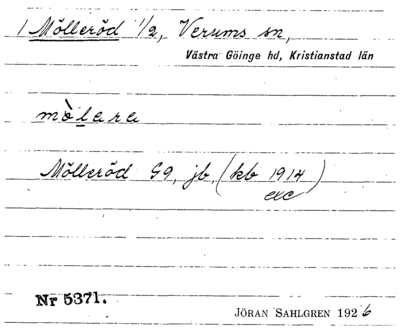 1 Mölleröd 1/2, Verums sn,
Västra Göinge hd, Kristianstad län
mò̀lara
Mölleröd G9, jb, (kb 1914)
exc
Nr 5371.
JÖRAN SAHLGREN 1926